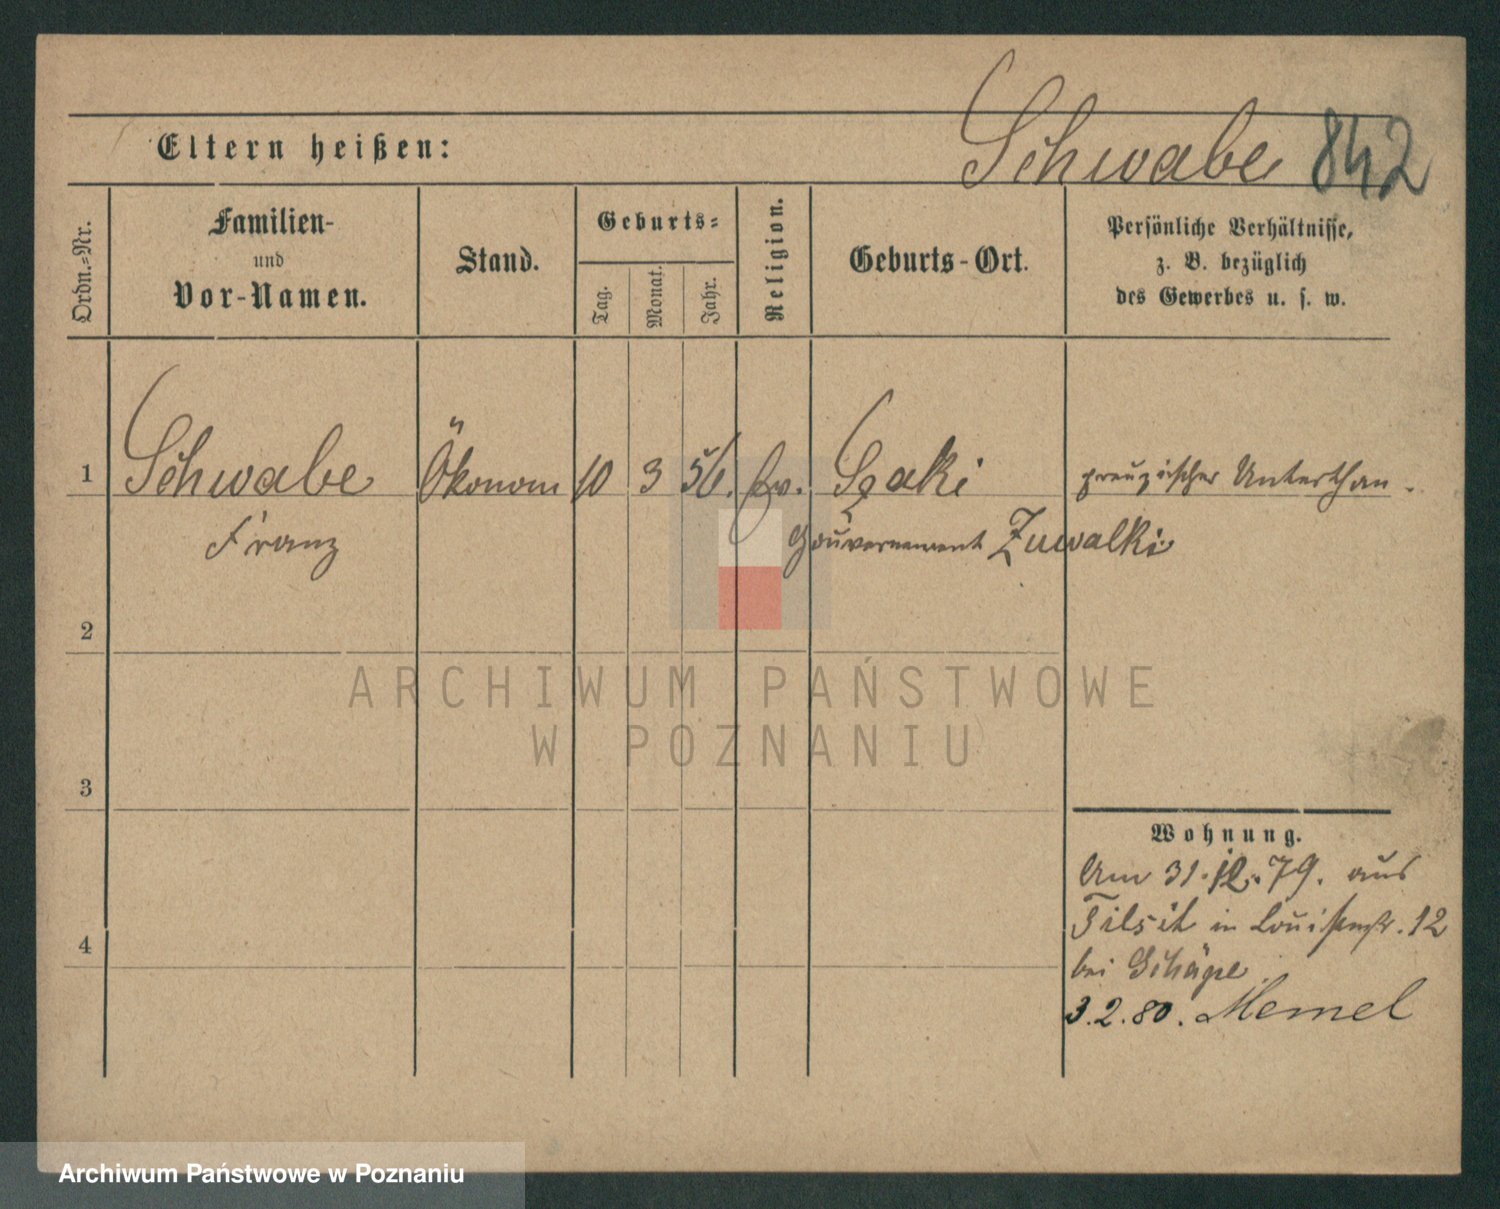 Schwabe 842
Eltern heißen:
Ordn.-Nr.
Familien-
und
Vor-Namen.
Stand.
Geburts-
Tag.
Monat.
Jahr.
Religion.
Geburts-Ort.
Persönliche Verhältnisse,
z. B. bezüglich
des Gewerbes u. s. w.
1 Schwabe Ökonom 10 3 56. Ev. preußischer Unterthan.
Franz Gouvernement Zuwalki
2
ARCHIWUM PAŃSTWOWE
W POZNANIU
3
Wohnung.
Am 31.12.79. aus
Tilsit in Louisenstr. 12
bei Schäpe
4
3.2.80. Memel
Archiwum Państwowe w Poznaniu